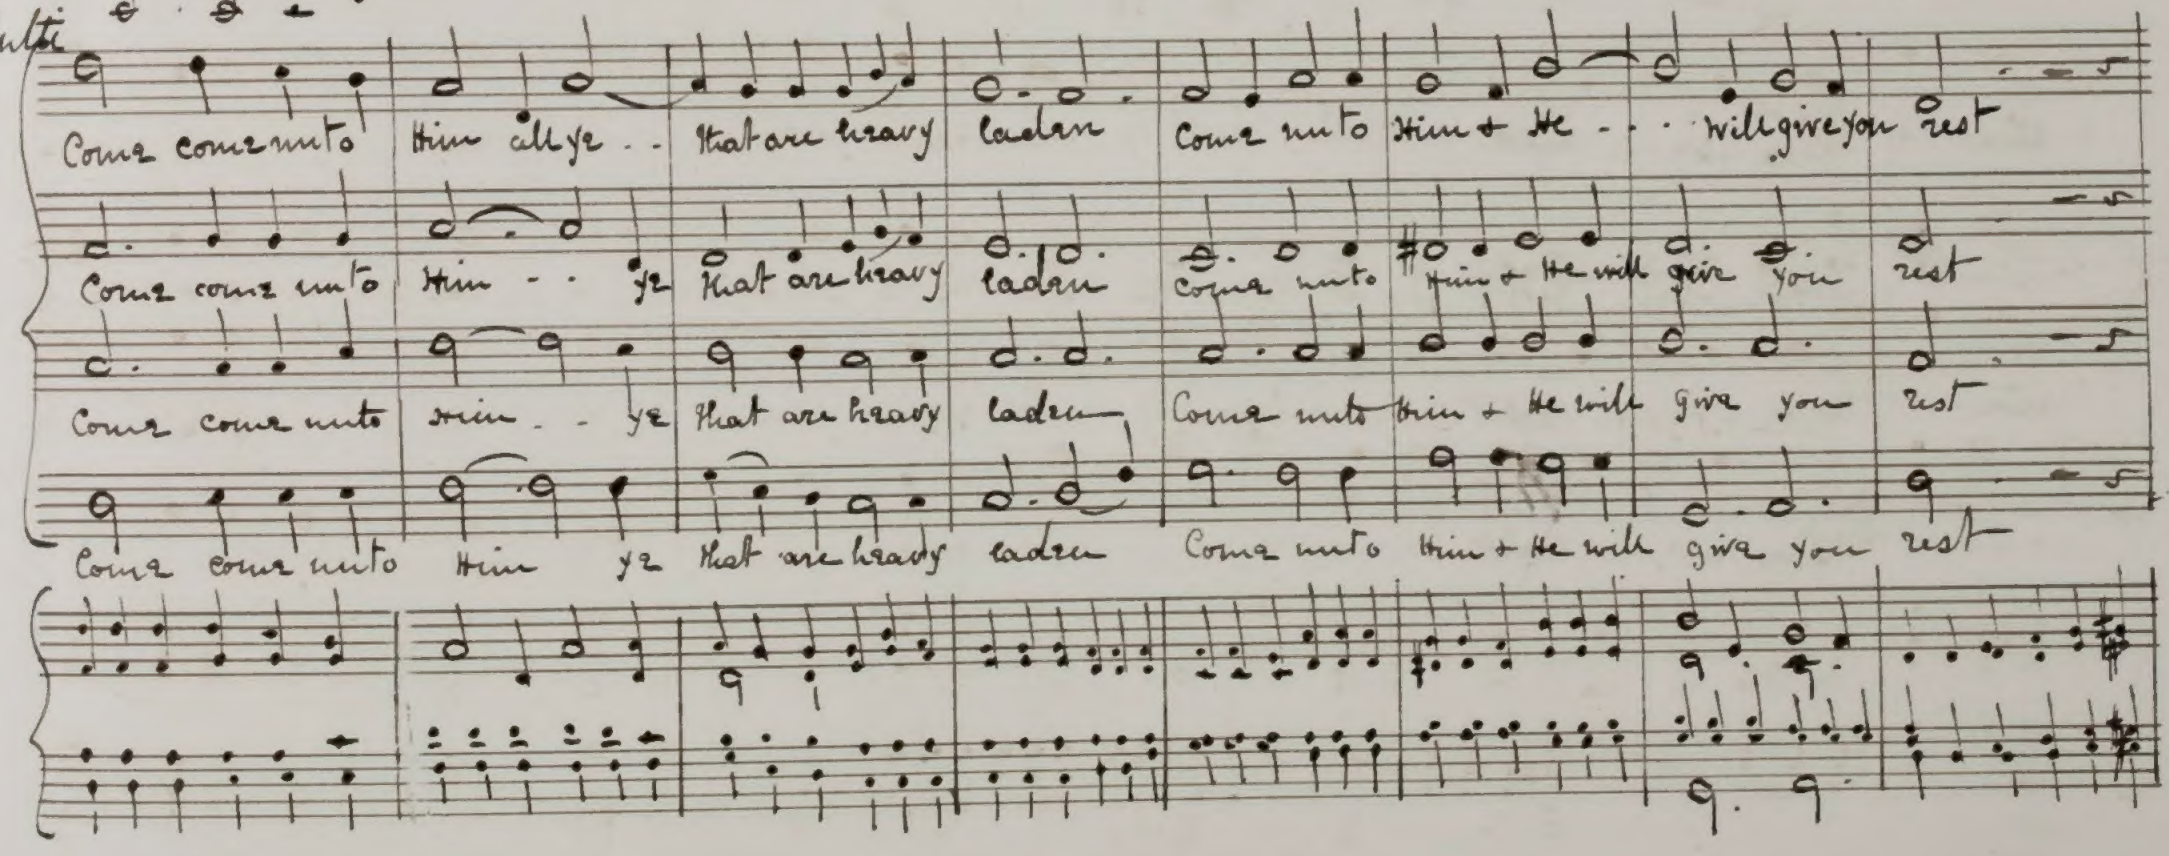 Come come unto Him all ye . . that are heavy laden Come unto Him + He - . . . will give you rest
Come come unto Him - . ye that are heavy laden Come unto Him + He will give you rest
Come come unto Him . - ye that are heavy laden Come unto Him + He will give you rest
Come come unto Him ye that are heavy laden Come unto Him + He will give you rest